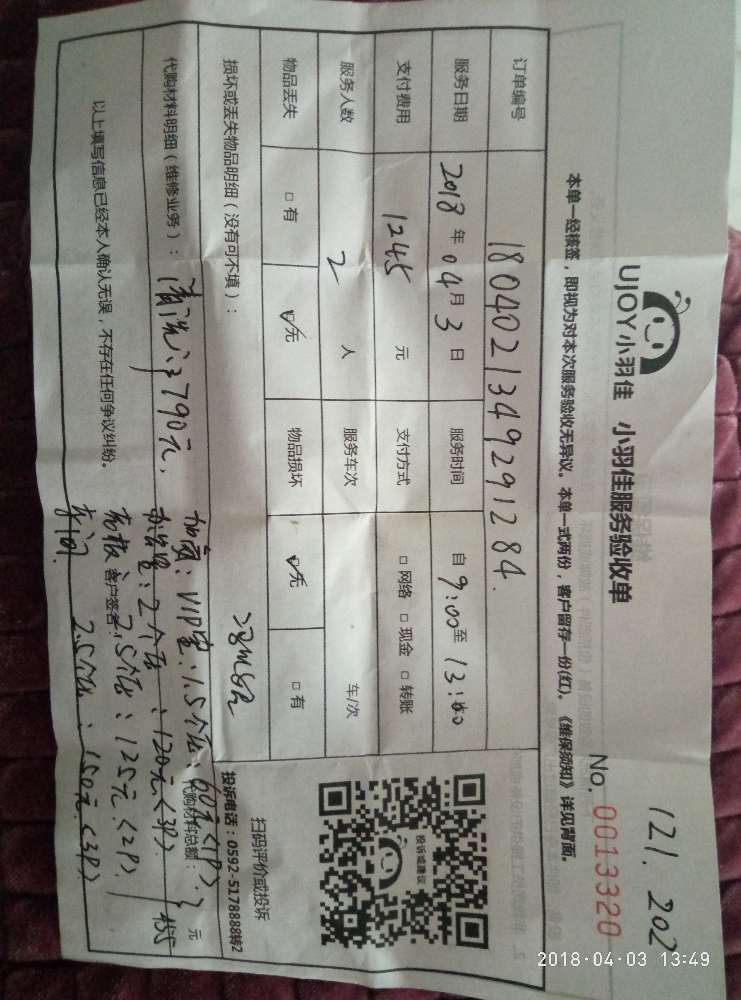 121. 202
UJOY小羽佳 小羽佳服务验收单
No. 0013320
本单一经核签，即视为对本次服务验收无异议。本单一式两份，客户留存一份(红)。《维保须知》详见背面。
订单编号 1804021349291284.
服务日期 2018年04月3日 服务时间 自9:00至13:00
支付费用 1245元 支付方式 □网络 □现金 □转账
服务人数 2人 服务车次 车/次
物品丢失 □有 ☑无 物品损坏 ☑无 □有
损坏或丢失物品明细（没有可不填）：
扫码评价或投诉
投诉电话：0592-5178888转2
投诉或建议
代购材料明细（维修业务）：清洗: 790元, 加氟: VIP室: 1.5个压: 60元<1P>
代购材料总额: 元
2个压: 120元<3P> 455
2.5个压: 125元<2P>
2.5个压: 150元<3P>
以上填写信息已经本人确认无误，不存在任何争议纠纷。 客户签名:
2018-04-03 13:49